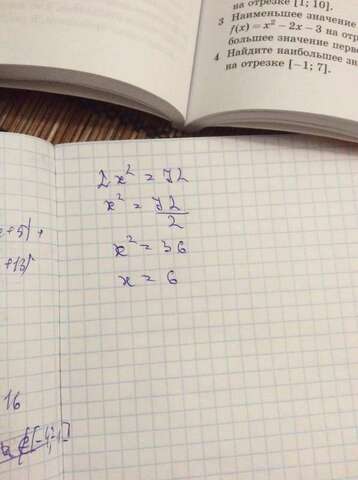 на отрезке [1; 10].
3 Наименьшее значение
f(x) = x² − 2x − 3 на отр
большее значение перво
4 Найдите наибольшее зн
на отрезке [−1; 7].
2x² = 72
x² = 72/2
x² = 36
x = 6
+5) +
+13)
16